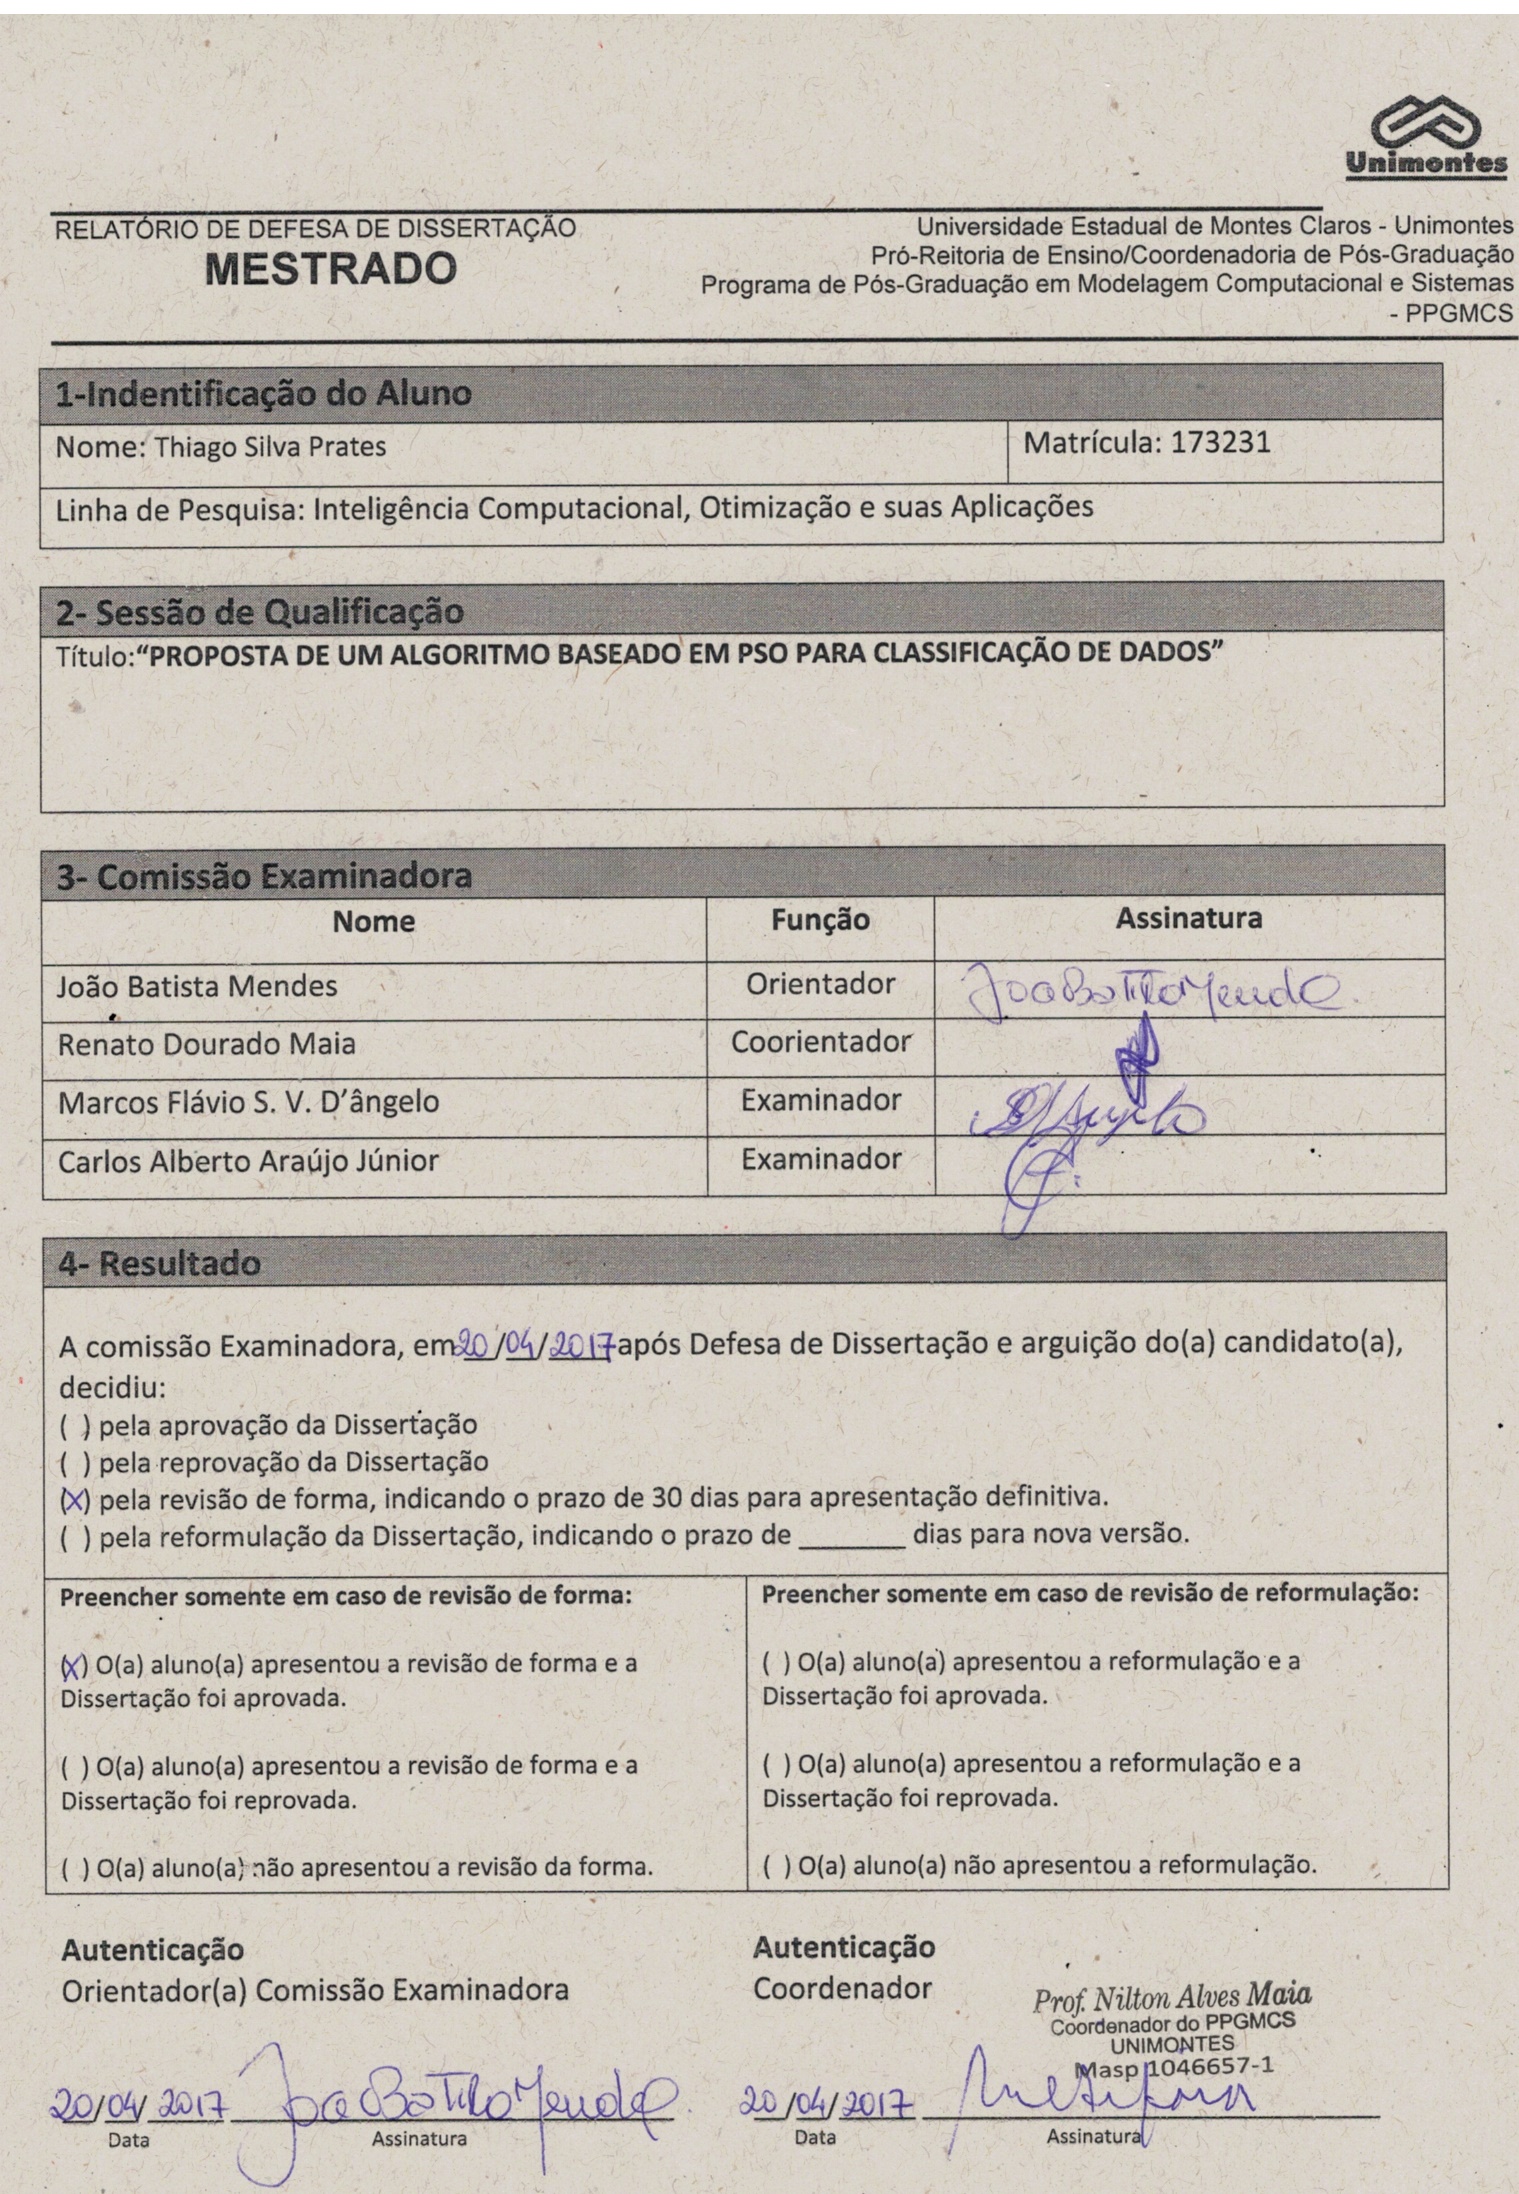 Unimontes
RELATÓRIO DE DEFESA DE DISSERTAÇÃO
MESTRADO
Universidade Estadual de Montes Claros - Unimontes
Pró-Reitoria de Ensino/Coordenadoria de Pós-Graduação
Programa de Pós-Graduação em Modelagem Computacional e Sistemas
- PPGMCS
1-Indentificação do Aluno
Nome: Thiago Silva Prates Matrícula: 173231
Linha de Pesquisa: Inteligência Computacional, Otimização e suas Aplicações
2- Sessão de Qualificação
Título:“PROPOSTA DE UM ALGORITMO BASEADO EM PSO PARA CLASSIFICAÇÃO DE DADOS”
3- Comissão Examinadora
Nome Função Assinatura
João Batista Mendes Orientador
Renato Dourado Maia Coorientador
Marcos Flávio S. V. D’ângelo Examinador
Carlos Alberto Araújo Júnior Examinador
4- Resultado
A comissão Examinadora, em 20/04/2017 após Defesa de Dissertação e arguição do(a) candidato(a),
decidiu:
( ) pela aprovação da Dissertação
( ) pela reprovação da Dissertação
(X) pela revisão de forma, indicando o prazo de 30 dias para apresentação definitiva.
( ) pela reformulação da Dissertação, indicando o prazo de _______ dias para nova versão.
Preencher somente em caso de revisão de forma:
(X) O(a) aluno(a) apresentou a revisão de forma e a
Dissertação foi aprovada.
( ) O(a) aluno(a) apresentou a revisão de forma e a
Dissertação foi reprovada.
( ) O(a) aluno(a) não apresentou a revisão da forma.
Preencher somente em caso de revisão de reformulação:
( ) O(a) aluno(a) apresentou a reformulação e a
Dissertação foi aprovada.
( ) O(a) aluno(a) apresentou a reformulação e a
Dissertação foi reprovada.
( ) O(a) aluno(a) não apresentou a reformulação.
Autenticação
Orientador(a) Comissão Examinadora
20/04/2017
Data Assinatura
Autenticação
Coordenador
Prof. Nilton Alves Maia
Coordenador do PPGMCS
UNIMONTES
Masp 1046657-1
20/04/2017
Data Assinatura